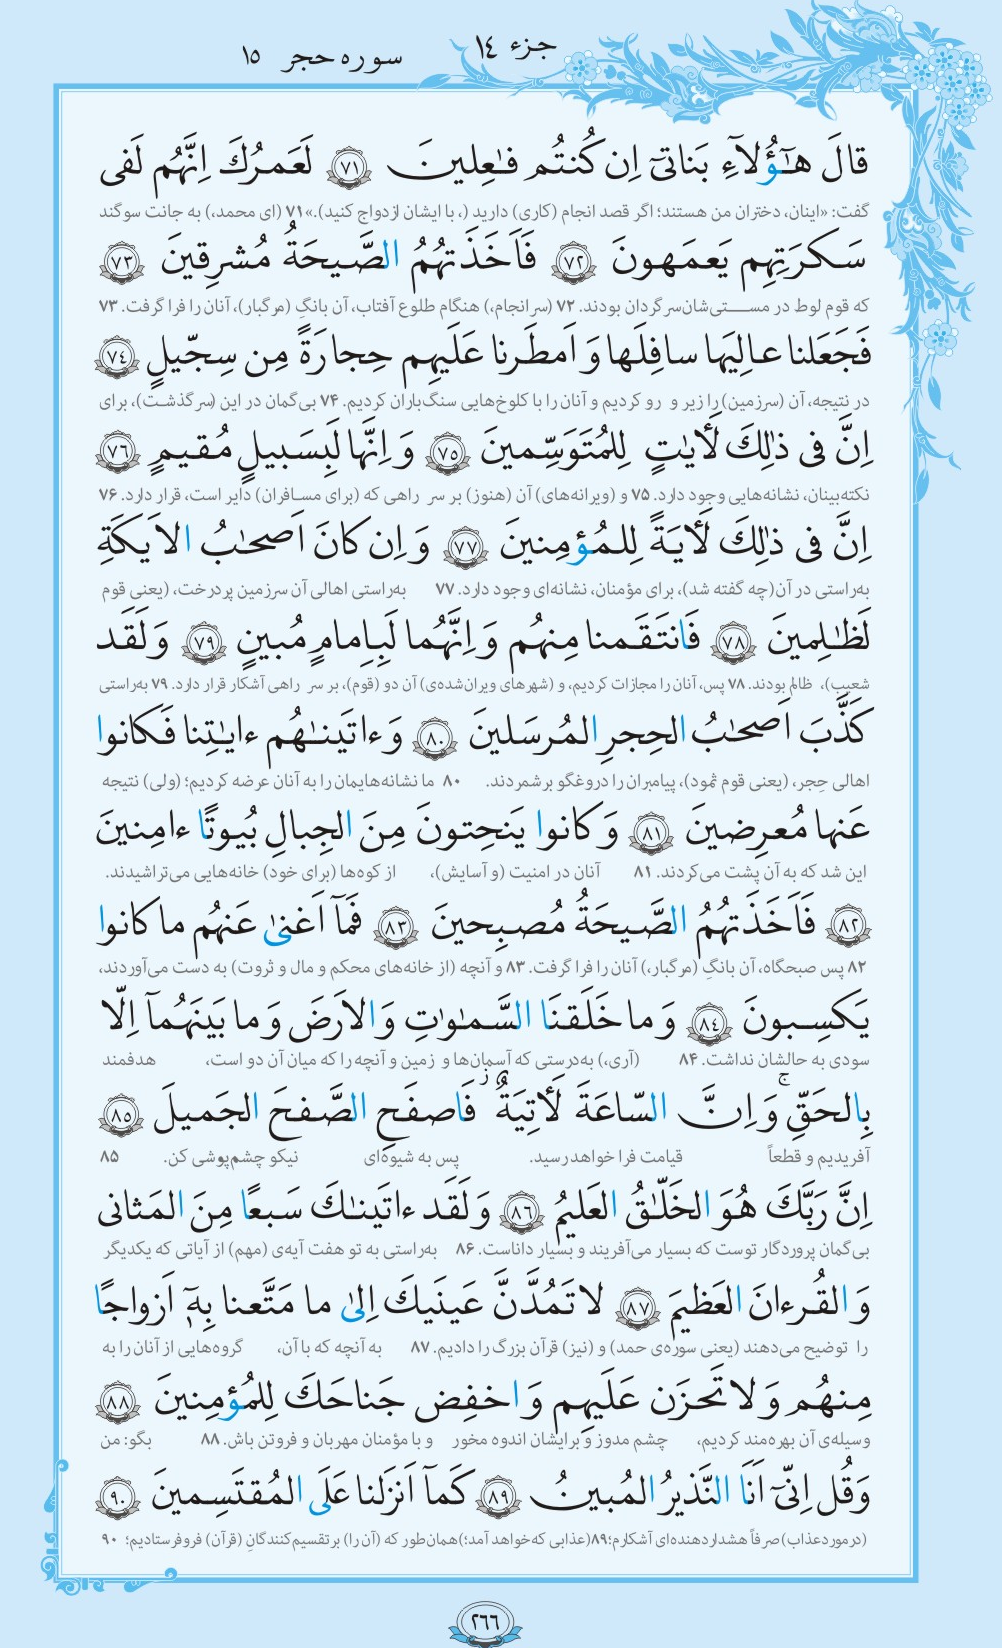 جزء ١٤
سوره حجر ١٥
قالَ هـٰٓؤُلآءِ بَناتیٓ اِن کُنتُم فـٰعِلینَ ٧١ لَعَمرُكَ اِنَّهُم لَفی
گفت: «اینان، دختران من هستند؛ اگر قصد انجام (کاری) دارید (، با ایشان ازدواج کنید).» ۷۱ (ای محمد،) به جانت سوگند
سَکرَتِهِم یَعمَهونَ ٧٢ فَاَخَذَتهُمُ الصَّیحَةُ مُشرِقینَ ٧٣
که قوم لوط در مستی‌شان سرگردان بودند. ۷۲ (سرانجام،) هنگام طلوع آفتاب، آن بانگِ (مرگبار)، آنان را فرا گرفت. ۷۳
فَجَعَلنا عالِیَها سافِلَها وَ اَمطَرنا عَلَیهِم حِجارَةً مِن سِجّیلٍ ٧٤
در نتیجه، آن (سرزمین) را زیر و رو کردیم و آنان را با کلوخ‌هایی سنگ‌باران کردیم. ۷۴ بی‌گمان در این (سرگذشت)، برای
اِنَّ فی ذٰلِكَ لَأٓیٰتٍ لِلمُتَوَسِّمینَ ٧٥ وَ اِنَّها لَبِسَبیلٍ مُقیمٍ ٧٦
نکته‌بینان، نشانه‌هایی وجود دارد. ۷۵ و (ویرانه‌های) آن (هنوز) بر سر راهی که (برای مسافران) دایر است، قرار دارد. ۷۶
اِنَّ فی ذٰلِكَ لَأٓیَةً لِلمُؤمِنینَ ٧٧ وَ اِن کانَ اَصحٰبُ الاَیکَةِ
به‌راستی در آن (چه گفته شد)، برای مؤمنان، نشانه‌ای وجود دارد. ۷۷ به‌راستی اهالی آن سرزمین پردرخت، (یعنی قوم
لَظـٰلِمینَ ٧٨ فَانتَقَمنا مِنهُم وَ اِنَّهُما لَبِاِمامٍ مُبینٍ ٧٩ وَ لَقَد
شعیب)، ظالم بودند. ۷۸ پس، آنان را مجازات کردیم، و (شهرهای ویران‌شده‌ی) آن دو (قوم)، بر سر راهی آشکار قرار دارد. ۷۹ به‌راستی
کَذَّبَ اَصحٰبُ الحِجرِ المُرسَلینَ ٨٠ وَ ءاتَینـٰهُم ءایـٰتِنا فَکانوا
اهالی حِجر، (یعنی قوم ثمود)، پیامبران را دروغگو برشمردند. ۸۰ ما نشانه‌هایمان را به آنان عرضه کردیم؛ (ولی) نتیجه
عَنها مُعرِضینَ ٨١ وَ کانوا یَنحِتونَ مِنَ الجِبالِ بُیوتًا ءامِنینَ
این شد که به آن پشت می‌کردند. ۸۱ آنان در امنیت (و آسایش)، از کوه‌ها (برای خود) خانه‌هایی می‌تراشیدند.
٨٢ فَاَخَذَتهُمُ الصَّیحَةُ مُصبِحینَ ٨٣ فَمآ اَغنیٰ عَنهُم ما کانوا
۸۲ پس صبحگاه، آن بانگِ (مرگبار،) آنان را فرا گرفت. ۸۳ و آنچه (از خانه‌های محکم و مال و ثروت) به دست می‌آوردند،
یَکسِبونَ ٨٤ وَ ما خَلَقنَا السَّمـٰوٰتِ وَ الاَرضَ وَ ما بَینَهُمآ اِلّا
سودی به حالشان نداشت. ۸۴ (آری،) به‌درستی که آسمان‌ها و زمین و آنچه را که میان آن دو است، هدفمند
بِالحَقِّ ۚ وَ اِنَّ السّاعَةَ لَأٓتِیَةٌ ۖ فَاصفَحِ الصَّفحَ الجَمیلَ ٨٥
آفریدیم و قطعاً قیامت فرا خواهد رسید. پس به شیوه‌ای نیکو چشم‌پوشی کن. ۸۵
اِنَّ رَبَّكَ هُوَ الخَلّٰقُ العَلیمُ ٨٦ وَ لَقَد ءاتَینـٰكَ سَبعًا مِنَ المَثانی
بی‌گمان پروردگار توست که بسیار می‌آفریند و بسیار داناست. ۸۶ به‌راستی به تو هفت آیه‌ی (مهم) از آیاتی که یکدیگر
وَ القُرءانَ العَظیمَ ٨٧ لا تَمُدَّنَّ عَینَیكَ اِلیٰ ما مَتَّعنا بِهٖٓ اَزواجًا
را توضیح می‌دهند (یعنی سوره‌ی حمد) و (نیز) قرآن بزرگ را دادیم. ۸۷ به آنچه که با آن، گروه‌هایی از آنان را به
مِنهُم وَ لا تَحزَن عَلَیهِم وَ اخفِض جَناحَكَ لِلمُؤمِنینَ ٨٨
وسیله‌ی آن بهره‌مند کردیم، چشم مدوز و برایشان اندوه مخور و با مؤمنان مهربان و فروتن باش. ۸۸ بگو: من
وَ قُل اِنّیٓ اَنَا النَّذیرُ المُبینُ ٨٩ کَمآ اَنزَلنا عَلَی المُقتَسِمینَ ٩٠
(در مورد عذاب) صرفاً هشداردهنده‌ای آشکارم؛ ۸۹ (عذابی که خواهد آمد؛) همان‌طور که (آن را) بر تقسیم‌کنندگانِ (قرآن) فرو فرستادیم؛ ۹۰
٢٦٦